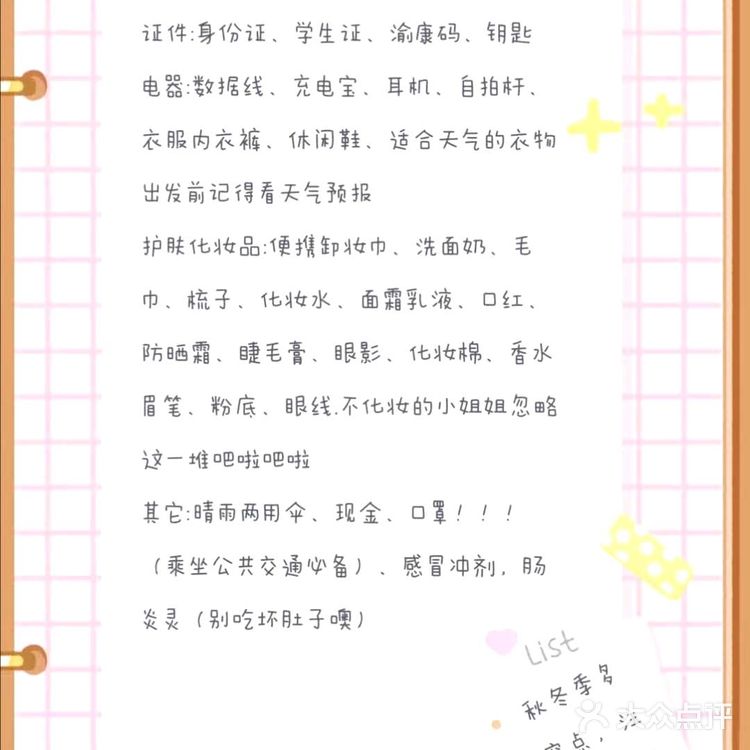 证件:身份证、学生证、渝康码、钥匙
电器:数据线、充电宝、耳机、自拍杆、
衣服内衣裤、休闲鞋、适合天气的衣物
出发前记得看天气预报
护肤化妆品:便携卸妆巾、洗面奶、毛
巾、梳子、化妆水、面霜乳液、口红、
防晒霜、睫毛膏、眼影、化妆棉、香水
眉笔、粉底、眼线.不化妆的小姐姐忽略
这一堆吧啦吧啦
其它:晴雨两用伞、现金、口罩！！！
（乘坐公共交通必备）、感冒冲剂，肠
炎灵（别吃坏肚子噢）
List
秋冬季多
点，
大众点评